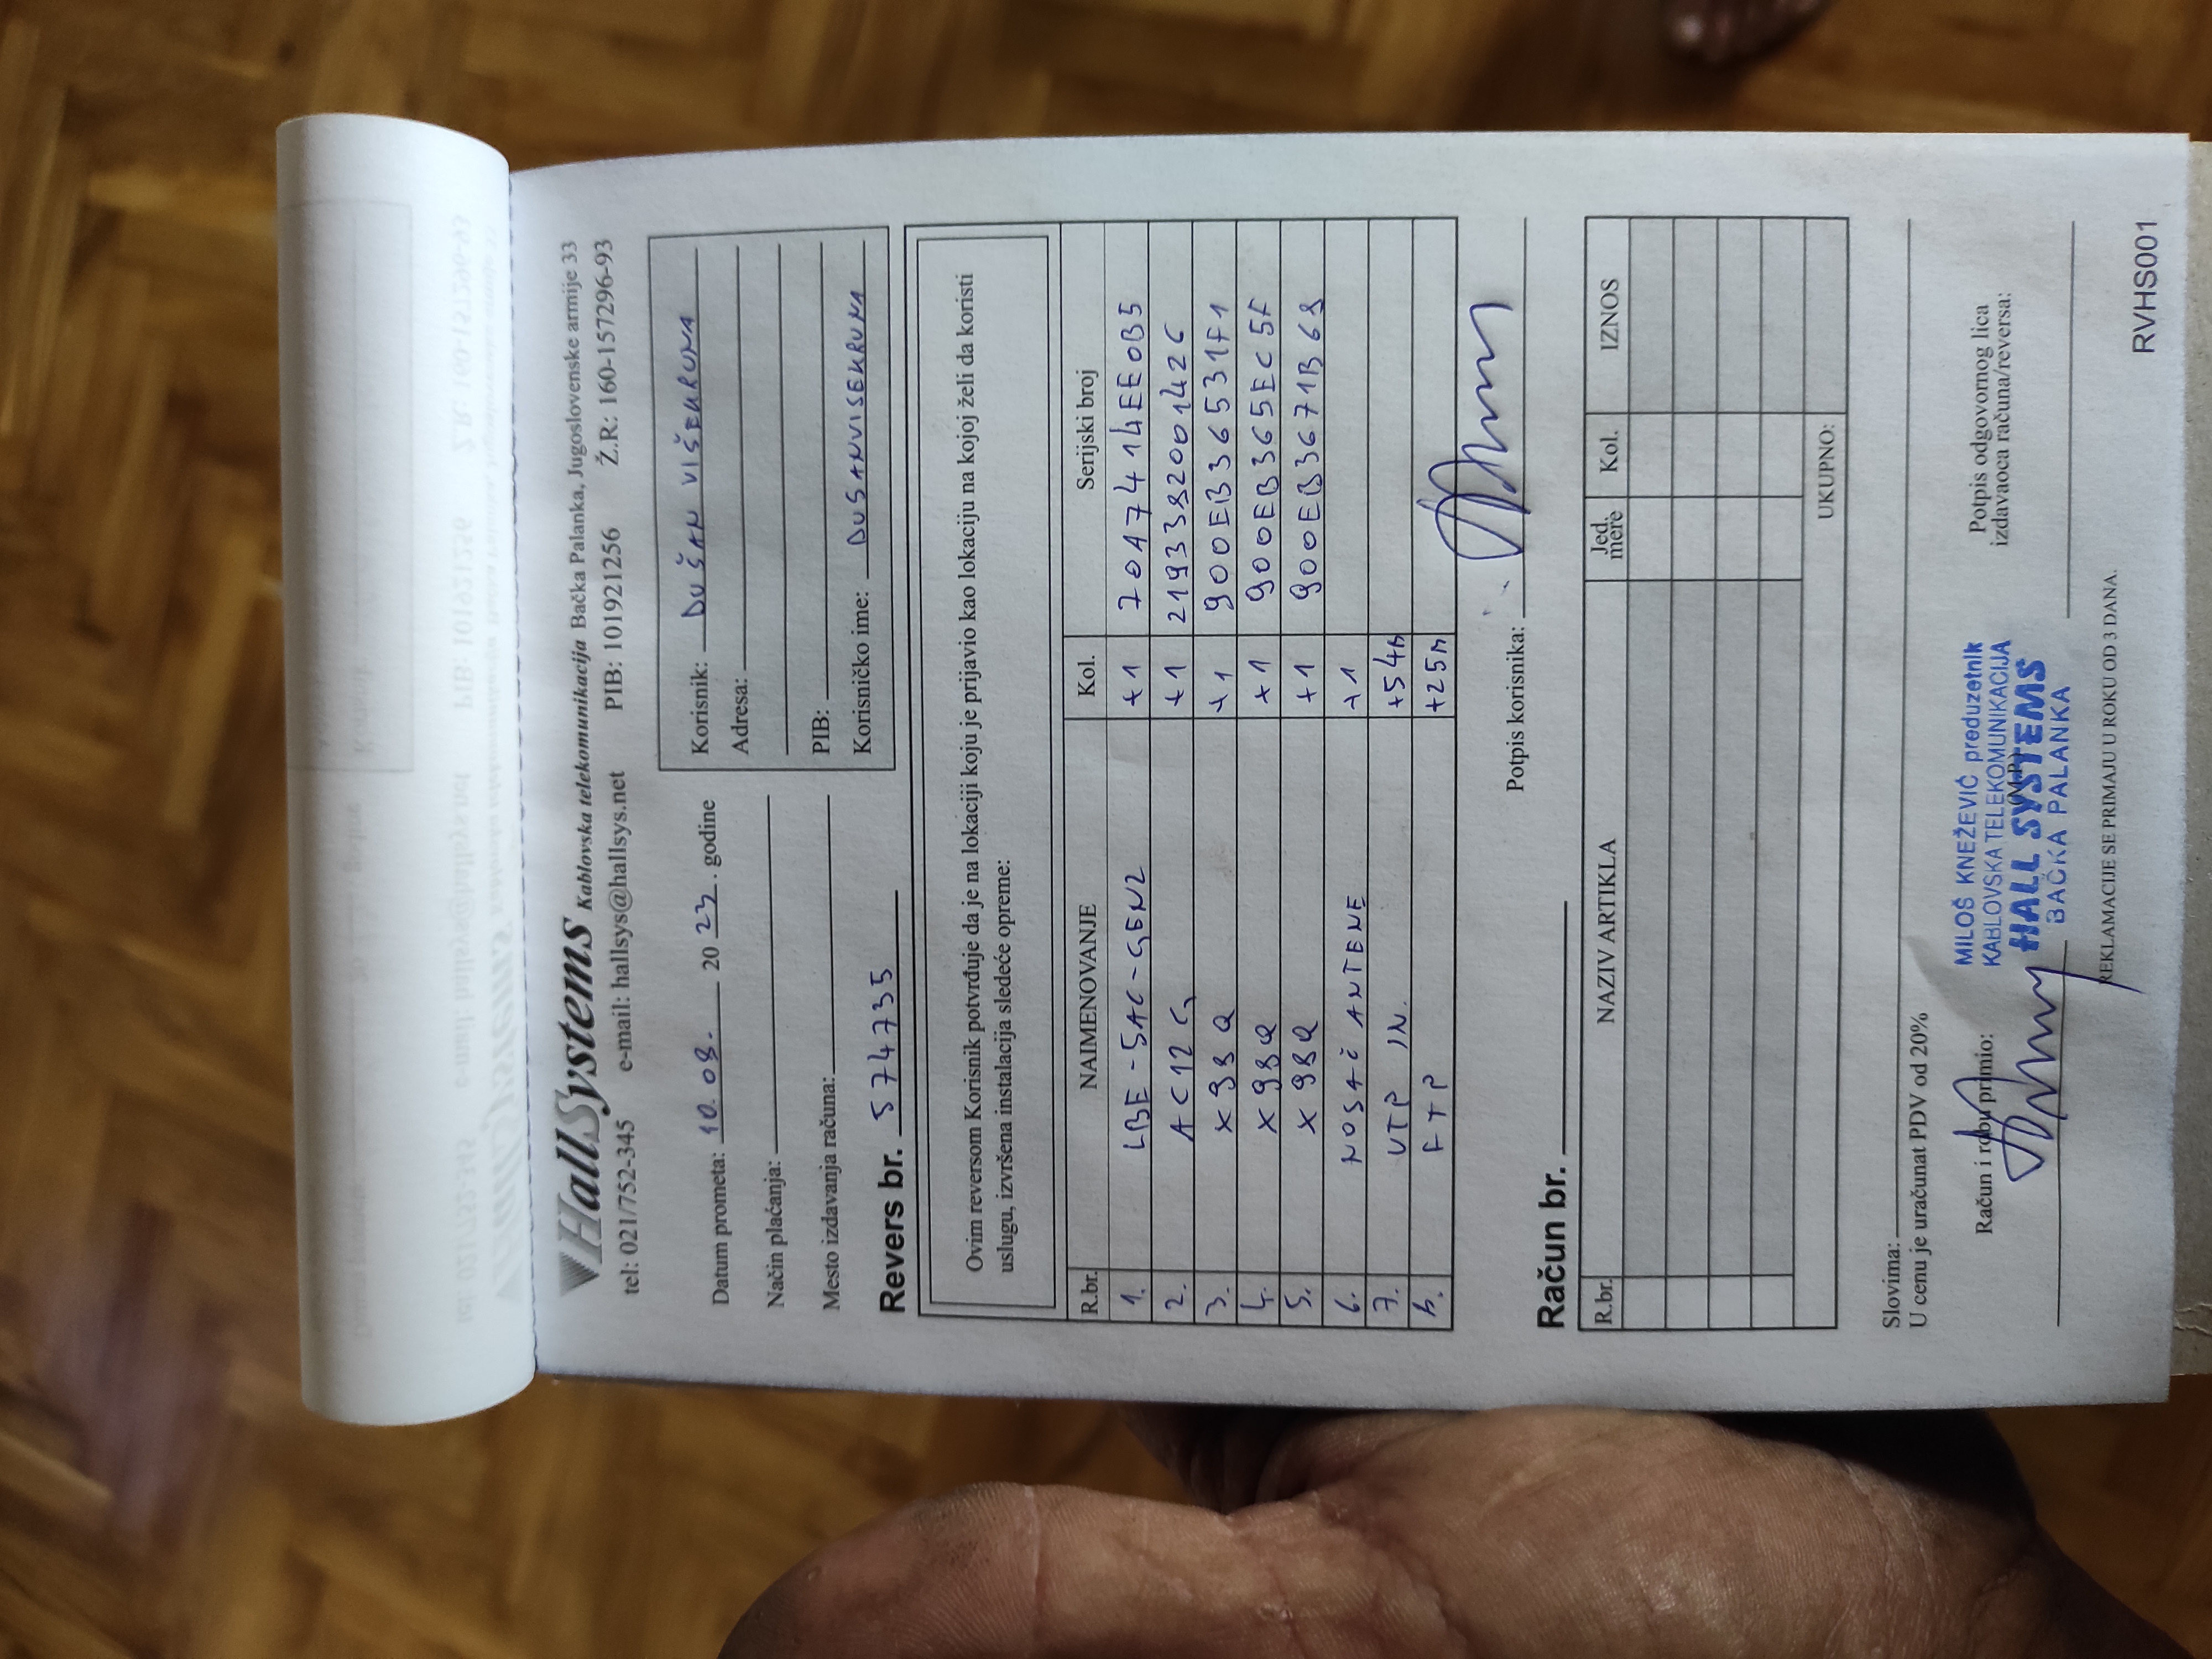 HallSystems Kablovska telekomunikacija Bačka Palanka, Jugoslovenske armije 33
tel: 021/752-345 e-mail: hallsys@hallsys.net PIB: 101921256 Ž.R: 160-157296-93
Datum prometa: 10. 08. 20 23. godine
Način plaćanja:
Mesto izdavanja računa:
Korisnik: DUŠAN VIŠEKRUNA
Adresa:
PIB:
Korisničko ime: DUSANVISEKRUNA
Revers br. 574735
Ovim reversom Korisnik potvrđuje da je na lokaciji koju je prijavio kao lokaciju na kojoj želi da koristi
uslugu, izvršena instalacija sledeće opreme:
R.br. NAIMENOVANJE Kol. Serijski broj
1. LBE-5AC-GEN2 +1 70A7414EE0B5
2. AC12G +1 219382001426
3. X98Q +1 900EB36531F1
4. X98Q +1 900EB365EC5F
5. X98Q +1 900EB3671B68
6. NOSAČ ANTENE +1
7. UTP IN. +54m
8. FTP +25m
Potpis korisnika:
Račun br.
R.br. NAZIV ARTIKLA Jed. mere Kol. IZNOS
UKUPNO:
Slovima:
U cenu je uračunat PDV od 20%
Račun i robu primio:
MILOŠ KNEŽEVIĆ preduzetnik
KABLOVSKA TELEKOMUNIKACIJA
HALL SYSTEMS
BAČKA PALANKA
Potpis odgovornog lica
izdavaoca računa/reversa:
REKLAMACIJE SE PRIMAJU U ROKU OD 3 DANA.
RVHS001